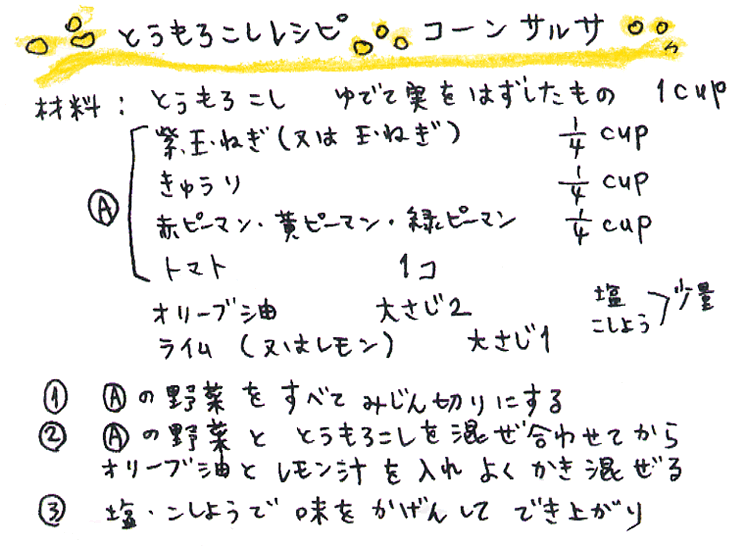 とうもろこしレシピ コーンサルサ
材料: とうもろこし ゆでて実をはずしたもの 1cup
Ⓐ
紫玉ねぎ(又は玉ねぎ) 1/4 cup
きゅうり 1/4 cup
赤ピーマン・黄ピーマン・緑ピーマン 1/4 cup
トマト 1コ
オリーブ油 大さじ2
ライム (又はレモン) 大さじ1
塩
こしょう 少量
① Ⓐの野菜をすべてみじん切りにする
② Ⓐの野菜ととうもろこしを混ぜ合わせてから
オリーブ油とレモン汁を入れよくかき混ぜる
③ 塩・こしょうで味をかげんしてでき上がり